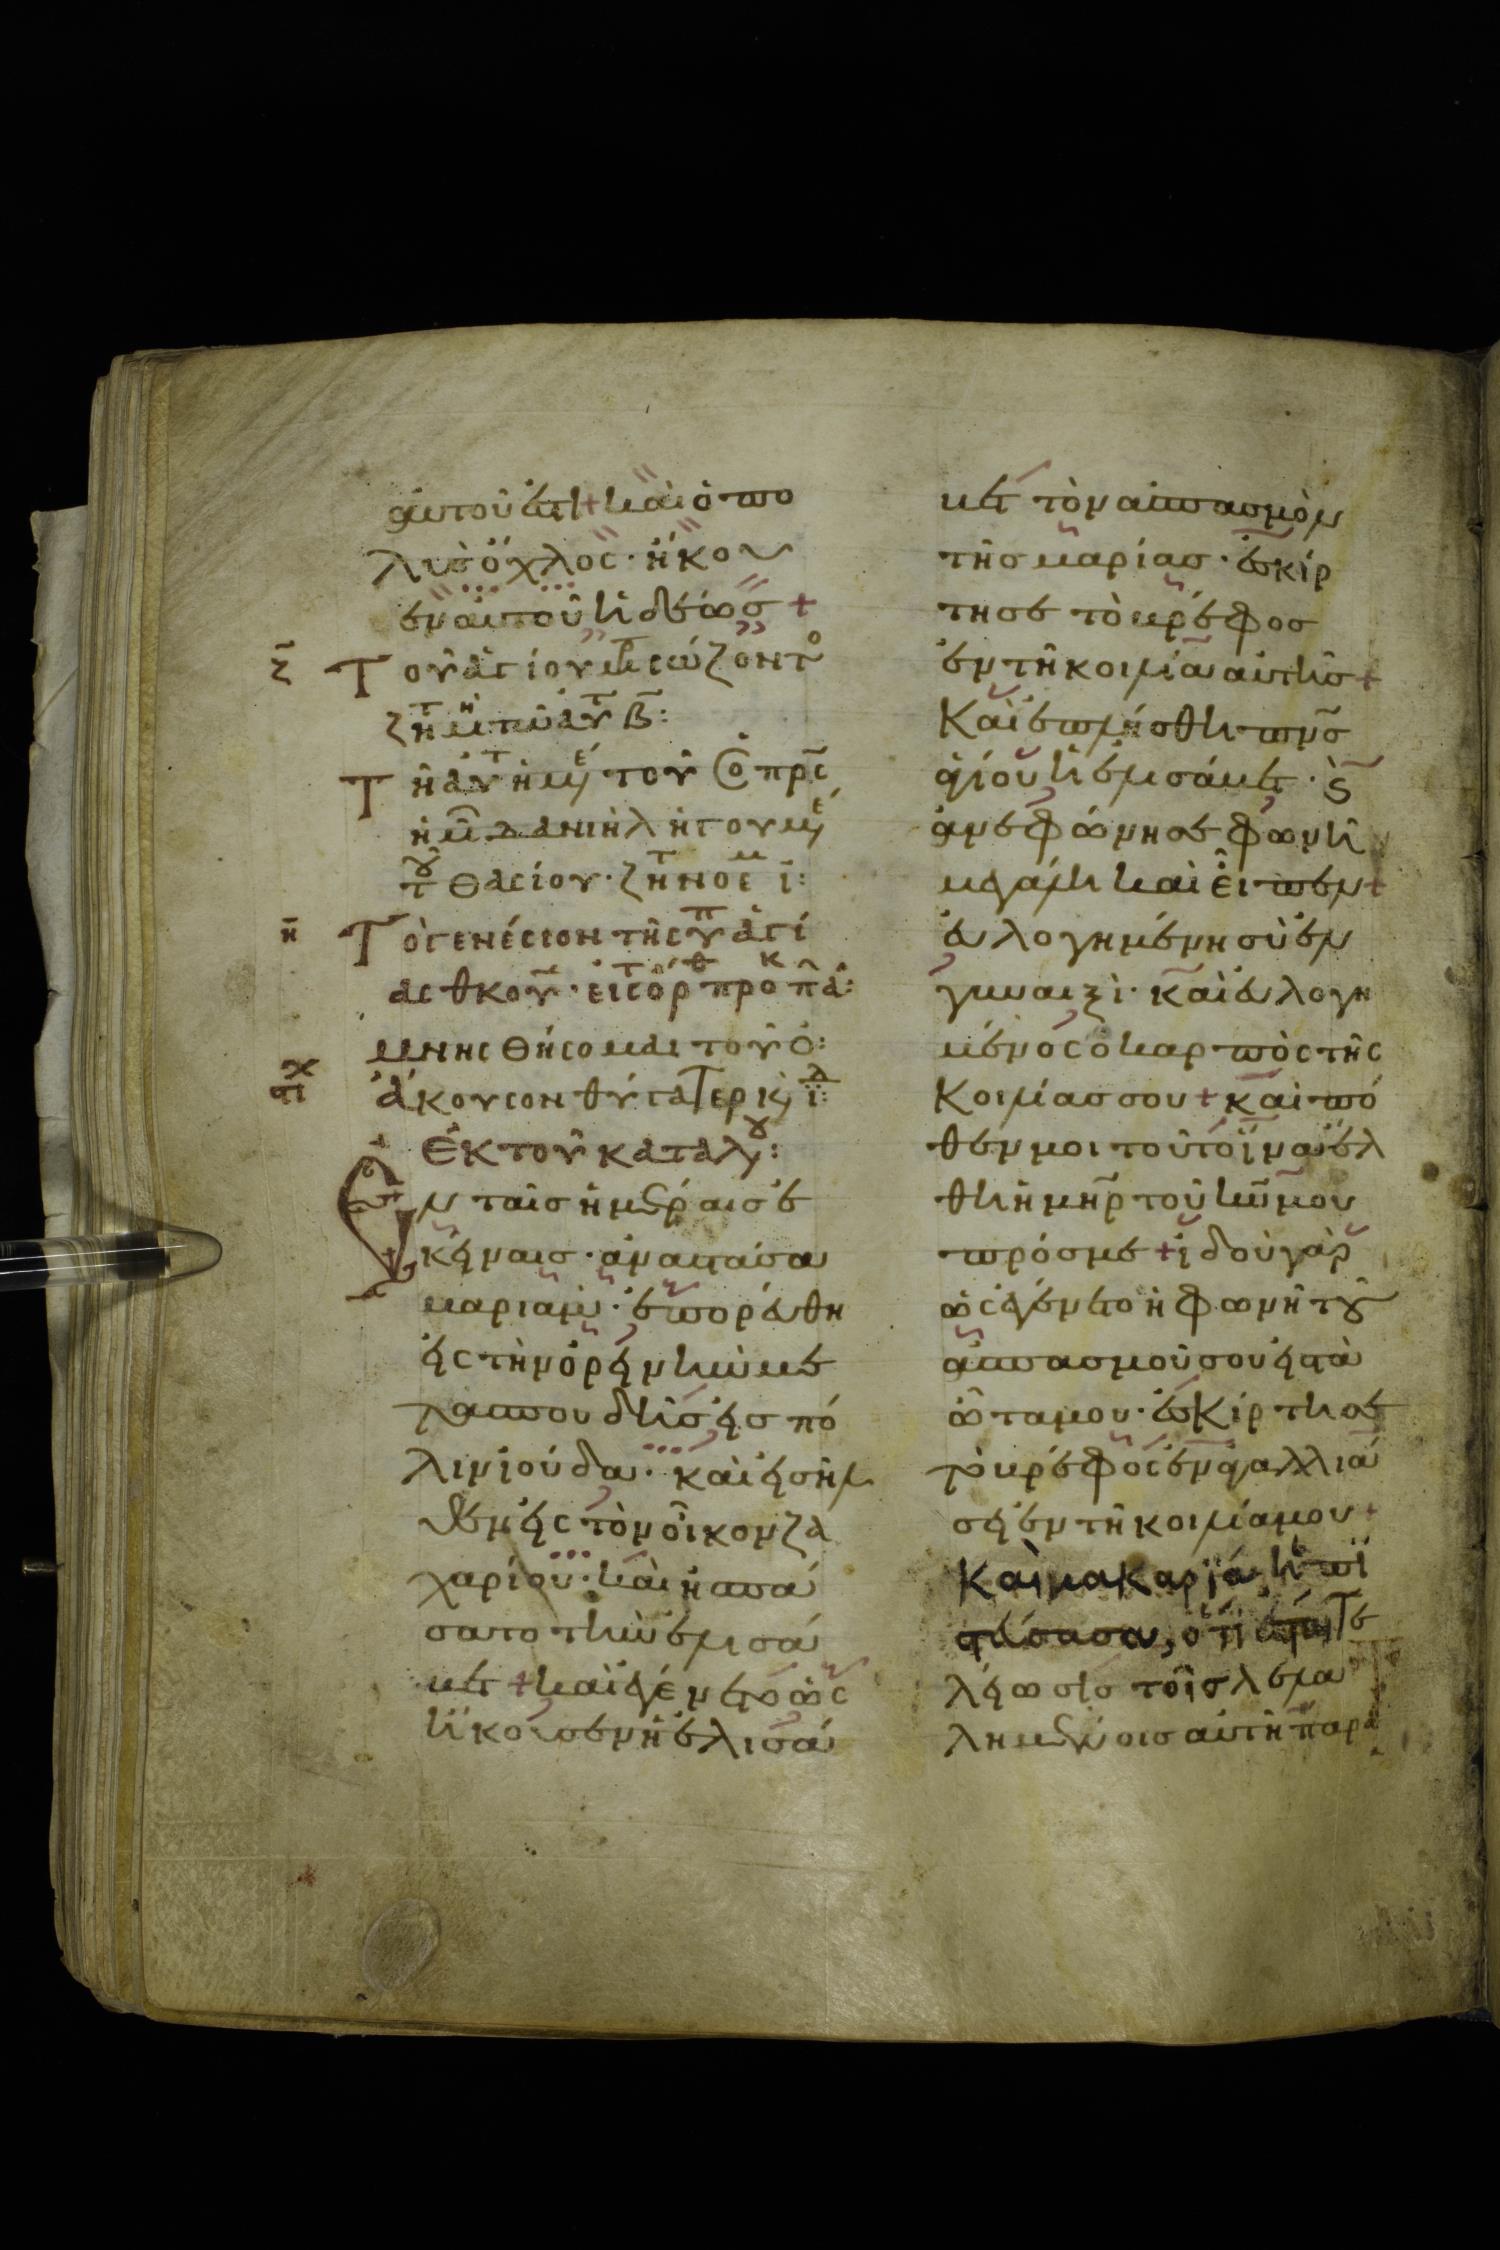 αυτοῦ ἐστι + καὶ ὁ πο
λὺσ ὄχλος · ἤκου
εν αὐτοῦ ἡδέωσ +
ζ Τοῦ ἁγίου μ σώζοντο
ζητ
Τῆ αὐτ ἡμέ τοῦ ὁ πρς
ἡμ δανιὴλ ἡγουμέ
τ θασίου · ζητ ι:
η Τὸ γενέσιον τῆς ὑπ ἁγί
ας θκου · εἰς τ ὄρθ προκ
μνησθήσομαι τοῦ ὀ:
στιχ ἄκουσον θύγατερ κ
Ἐκ τοῦ κατὰ λου:
Ἐν ταῖσ ἡμέραισ ἐ
κείναισ · ἀναστᾶσα
μαριὰμ · ἐπορεύθη
εἰς τὴν ὀρεινὴν με
τα σπουδῆσ εἰσ πό
λιν ἰούδα · καὶ εἰσῆλ
θεν εἰς τὸν οἶκον ζα
χαρίου · καὶ ἠσπά
σατο τὴν ἐλισά
βετ + καὶ ἐγένετο ὡς
ἤκουσεν ἡ ἐλισά
βετ τὸν ἀσπασμὸν
τῆσ μαρίασ · ἐσκίρ
τησε τὸ βρέφοσ
ἐν τῆ κοιλία αὐτῆσ +
Καὶ ἐπλήσθη πνσ
ἁγίου ἡ ἐλισάβετ · ϗ
ἀνεφώνησε φωνῆ
μεγάλη καὶ εἶπεν +
εὐλογημένη σὺ ἐν
γυναιξὶ · καὶ εὐλογη
μένος ὁ καρπὸς τῆς
Κοιλίασ σου + καὶ πό
θεν μοι τοῦτο ἵνα ἔλ
θη ἡ μηρ τοῦ κυ μου
πρόσ με + ἰδοὺ γὰρ
ὡς ἐγένετο ἡ φωνὴ τοῦ
ἀσπασμοῦ σου εἰς τὰ
ὦτα μου · ἐσκίρτησε
τὸ βρέφος ἐν ἀγαλλιά
σει ἐν τῆ κοιλία μου +
Καὶ μακαρΐα ἡ πϊ
στεύσασα, ὅτι ἔσται τε
λείωσισ τοῖσ λελα
λημένοισ αὐτῆ παρὰ